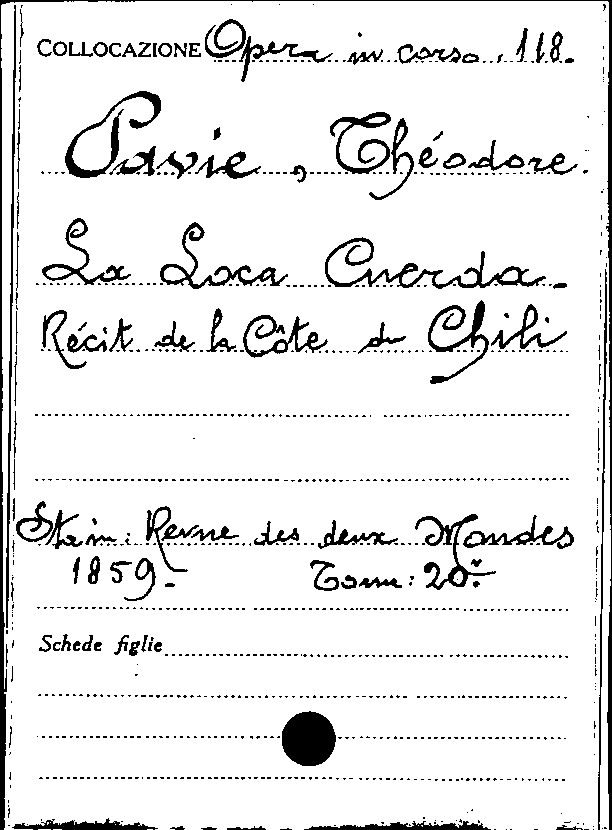 COLLOCAZIONE Opera in corso. 118.
Pavie, Théodore.
La Loca Cuerda.
Récit de la Côte du Chili
Sta in: Revue des deux Mondes
1859. Tom: 20.
Schede figlie